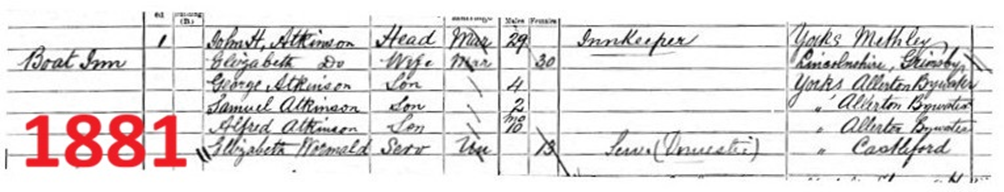 Males Females
1 John H. Atkinson Head Mar 29 Innkeeper Yorks Methley
Boat Inn Elizabeth Do Wife Mar 30 Lincolnshire, Grimsby
George Atkinson Son 4 Yorks Allerton Bywater
Samuel Atkinson Son 2 " Allerton Bywater
Alfred Atkinson Son mo 10 " Allerton Bywater
1881 Elizabeth Wormald Serv Un 13 Serv (Domestic) " Castleford